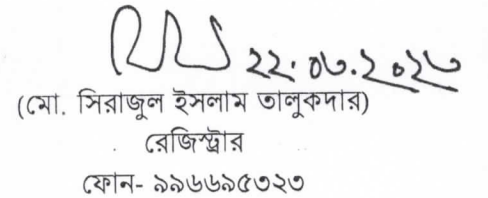 ২২.০৩.২০২৩
(মো. সিরাজুল ইসলাম তালুকদার)
রেজিস্ট্রার
ফোন- ৯৯৬৬৯৫৩২৩